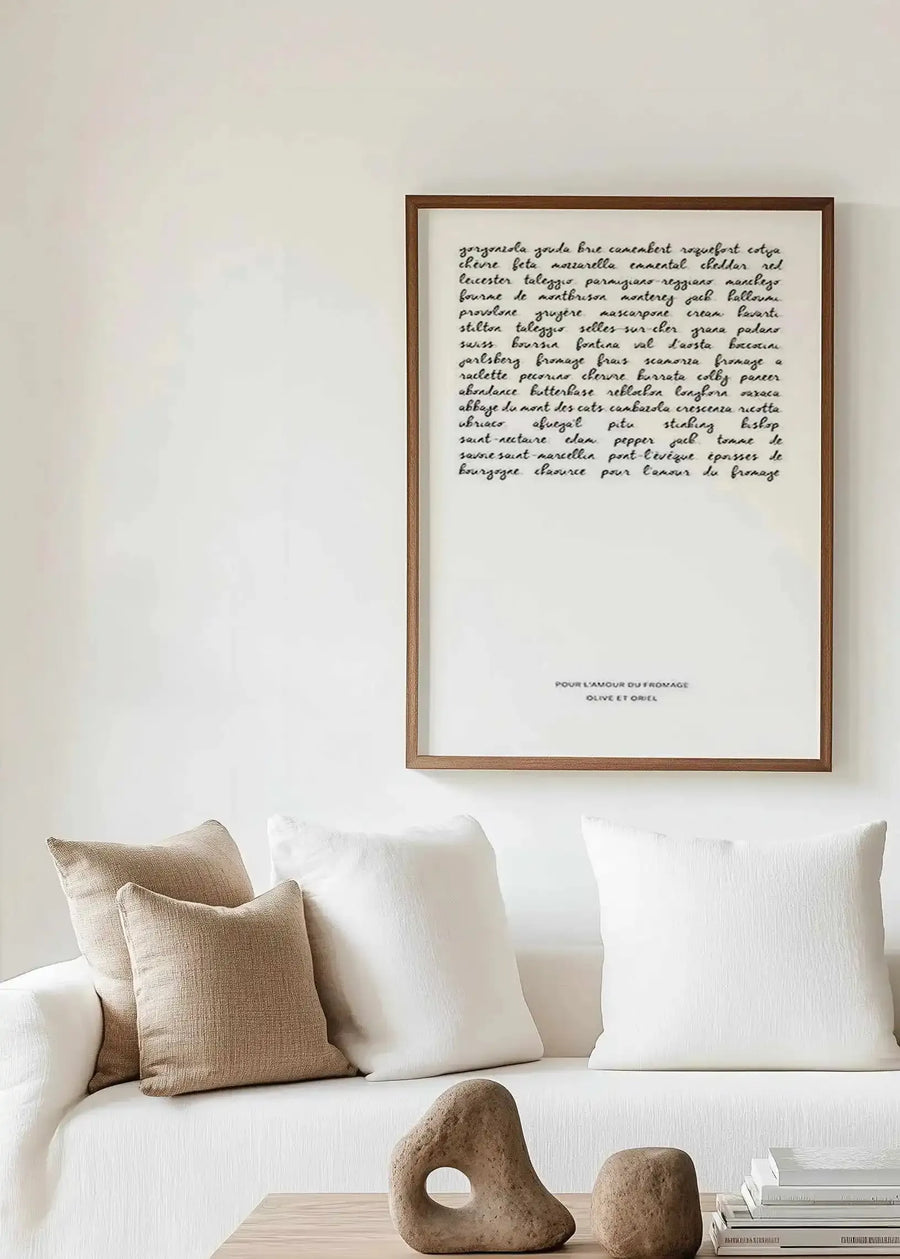 gorgonzola gouda brie camembert roquefort cotija
chèvre feta mozzarella emmental cheddar red
leicester taleggio parmigiano-reggiano manchego
fourme de montbrison monterey jack halloumi
provolone gruyère mascarpone cream havarti
stilton taleggio selles-sur-cher grana padano
swiss boursin fontina val d'aosta bocconcini
jarlsberg fromage frais scamorza fromage a
raclette pecorino chevre burrata colby paneer
abondance butterkase reblochon longhorn oaxaca
abbaye du mont des cats cambazola crescenza ricotta
ubriaco afuega'l pitu stinking bishop
saint-nectaire edam pepper jack tomme de
savoie saint-marcellin pont-l'évêque époisses de
bourgogne chaource pour l'amour du fromage
POUR L'AMOUR DU FROMAGE
OLIVE ET ORIEL